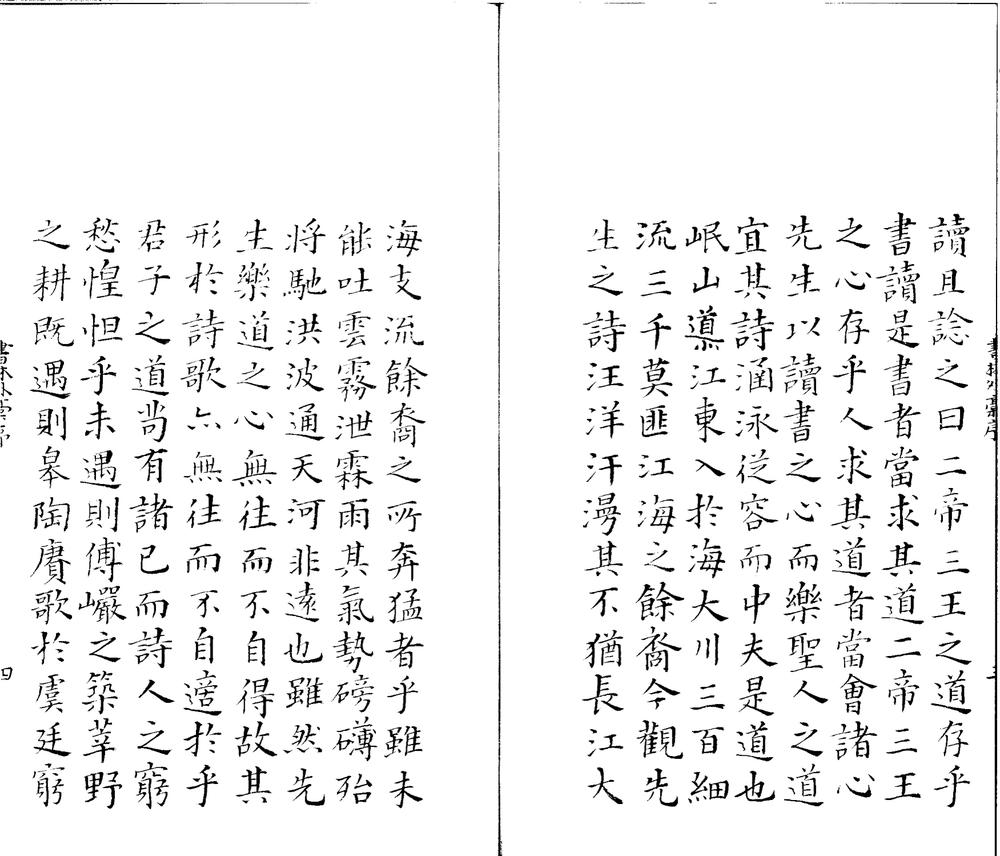 讀且諗之曰二帝三王之道存乎
書讀是書者當求其道二帝三王
之心存乎人求其道者當會諸心
先生以讀書之心而樂聖人之道
宜其詩涵泳從容而中夫是道也
岷山導江東入於海大川三百細
流三千莫匪江海之餘裔今觀先
生之詩汪洋汗漫其不猶長江大
海支流餘裔之所奔猛者乎雖未
能吐雲霧泄霖雨其氣勢磅礴殆
將馳洪波通天河非遠也雖然先
生樂道之心無往而不自得故其
形於詩歌亦無往而不自適於乎
君子之道尚有諸已而詩人之窮
愁惶怛乎未遇則傅巖之築莘野
之耕既遇則皋陶賡歌於虞廷窮
四